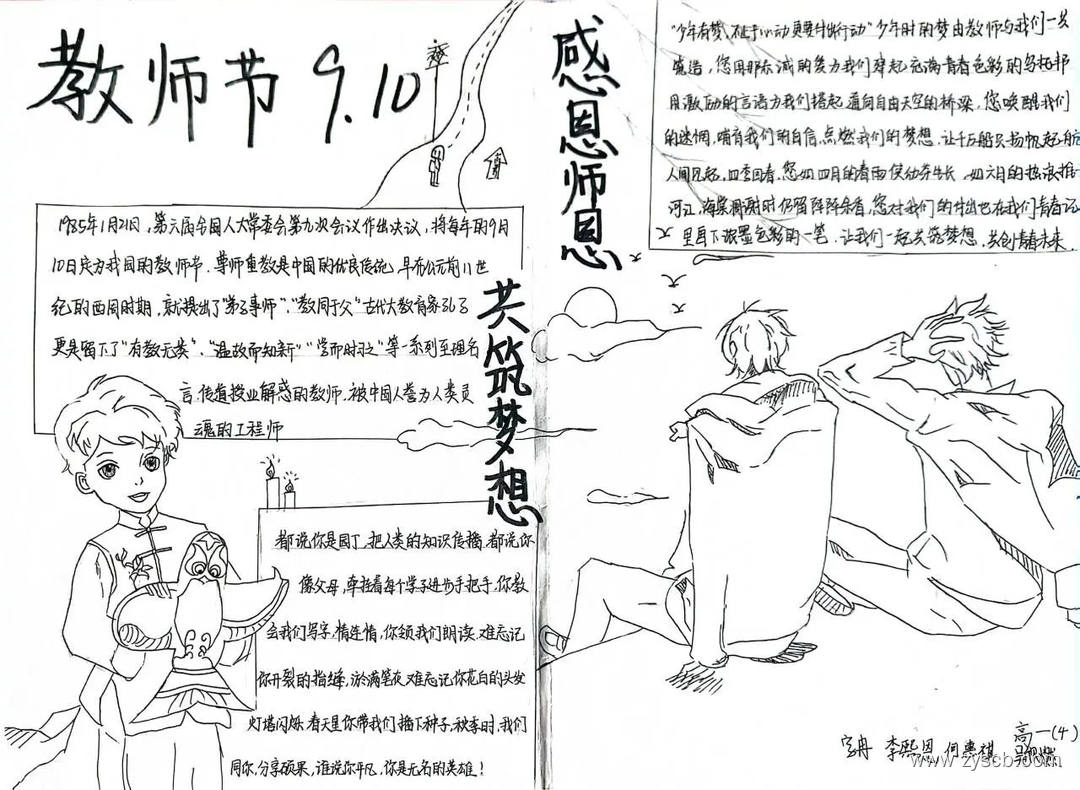 教师节 9.10
1985年1月21日，第六届全国人大常委会第九次会议作出决议，将每年的9月
10日定为我国的教师节．尊师重教是中国的优良传统，早在公元前11世
纪的西周时期，就提出了"弟子事师"，"敬同于父"古代大教育家孔子
更是留下了"有教无类"．"温故而知新""学而时习之"等一系列至理名
言．传道授业解惑的教师，被中国人誉为人类灵
魂的工程师
共筑梦想
都说你是园丁，把人类的知识传播，都说你
像父母，牵挂着每个学子进步手把手，你教
会我们写字，情连情，你领我们朗读．难忘记
你开裂的指缝，淤满笔灰，难忘记你花白的头发
灯塔闪烁．春天里你带我们播下种子，秋季时，我们
同你，分享硕果，谁说你平凡，你是无名的英雄！
感恩师恩
"少年有梦，不止于心动更要付出行动"少年时的梦由教师与我们一共
筑造，您用那赤诚的爱为我们穿起充满青春色彩的乌托邦
用激励的言语为我们搭起通向自由天空的桥梁，您唤醒我们
的迷惘，哺育我们的自信，点燃我们的梦想．让千万船只扬帆起航
人间风起，四季回春，您如四月的春雨催动芽生长，如六月的热浪推
河江，海棠凋谢时仍留阵阵余香，您对我们的付出也在我们青春记
里再下浓墨色彩的一笔．让我们一起共筑梦想，共创青春未来．
高一(4)
李熙恩
www.zyscb.com